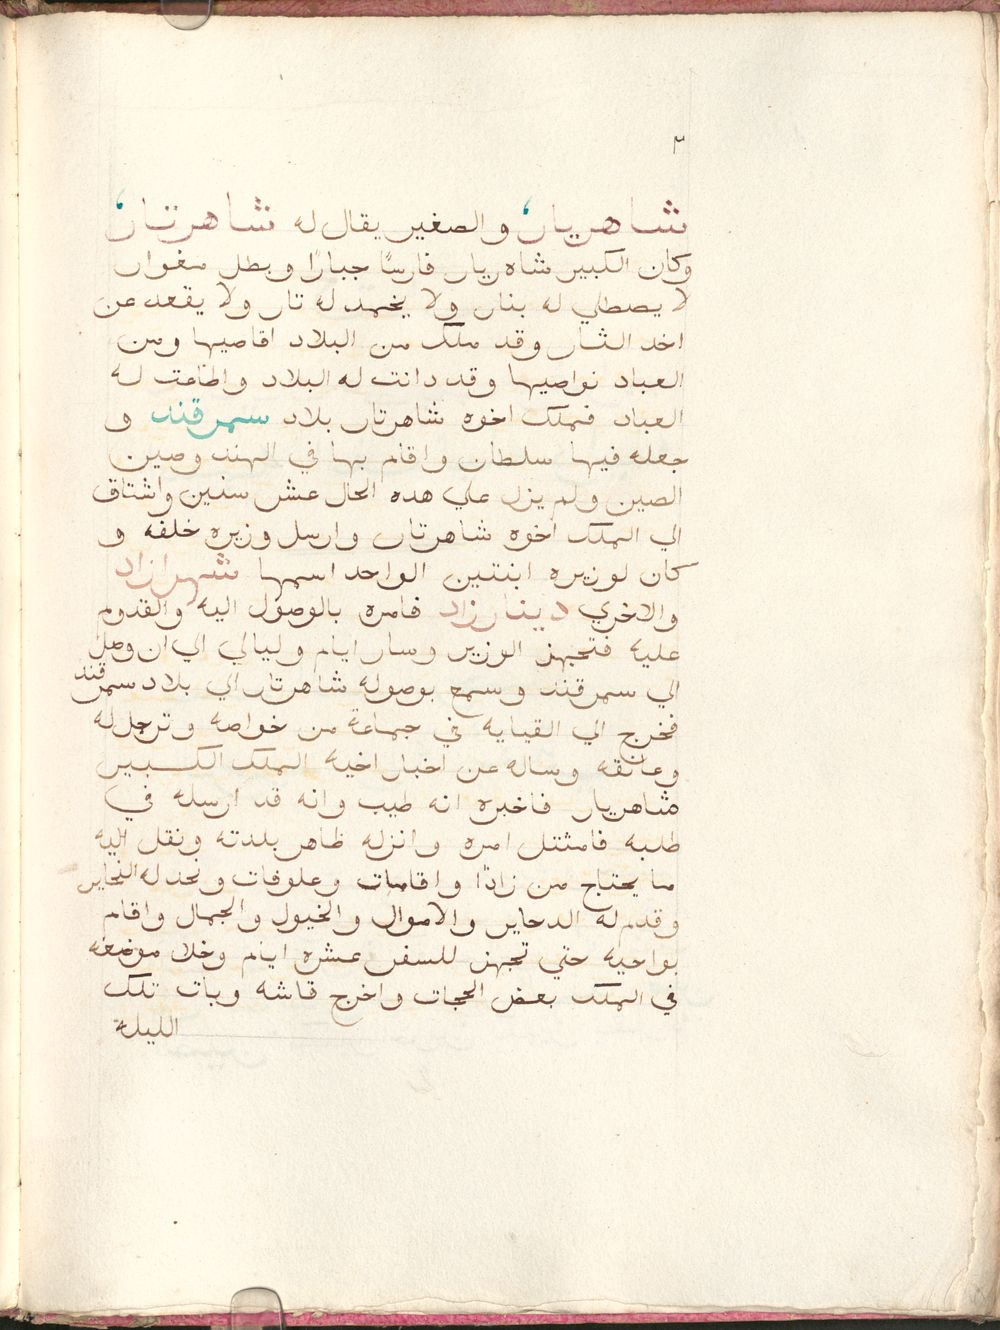 ٣
شاهريار والصغير يقال له شاهرتار
وكان الكبير شاه ريار فارسًا جبارًا وبطل مغوار
لا يصطلي له بنار ولا يخمد له تار ولا يقعد عن
اخد الثار وقد ملك من البلاد اقاصيها ومن
العباد نواصيها وقد دانت له البلاد واطاعت له
العباد فملك اخوه شاهرتار بلاد سمرقند و
جعله فيها سلطان واقام بها في الهند وصين
الصين ولم يزل علي هده الحال عشر سنين واشتاق
الي الملك اخوه شاهرتار وارسل وزيره خلفه و
كان لوزيره ابنتين الواحد اسمها شهرازاد
والاخري دينارزاد فامره بالوصول اليه والقدوم
عليه فتجهز الوزير وسار ايام وليالي الي ان وصل
الي سمرقند وسمع بوصوله شاهرتار الي بلاد سمرقند
فخرج الي القيايه في جماعة من خواصه وترجل له
وعانقه وساله عن اخبار اخيه الملك الكبير
شاهريار فاخبره انه طيب وانه قد ارسله في
طلبه فامتثل امره وانزله ظاهر بلدته ونقل اليه
ما يحتاج من زادًا واقامات وعلوفات ونحد له النحاير
وقدم له الدحاير والاموال والخيول والجمال واقام
بواحيه حتي تجهز للسفر عشره ايام وخلا موضعه
في الملك بعض الحجات واخرج قاشه وبات تلك
الليله